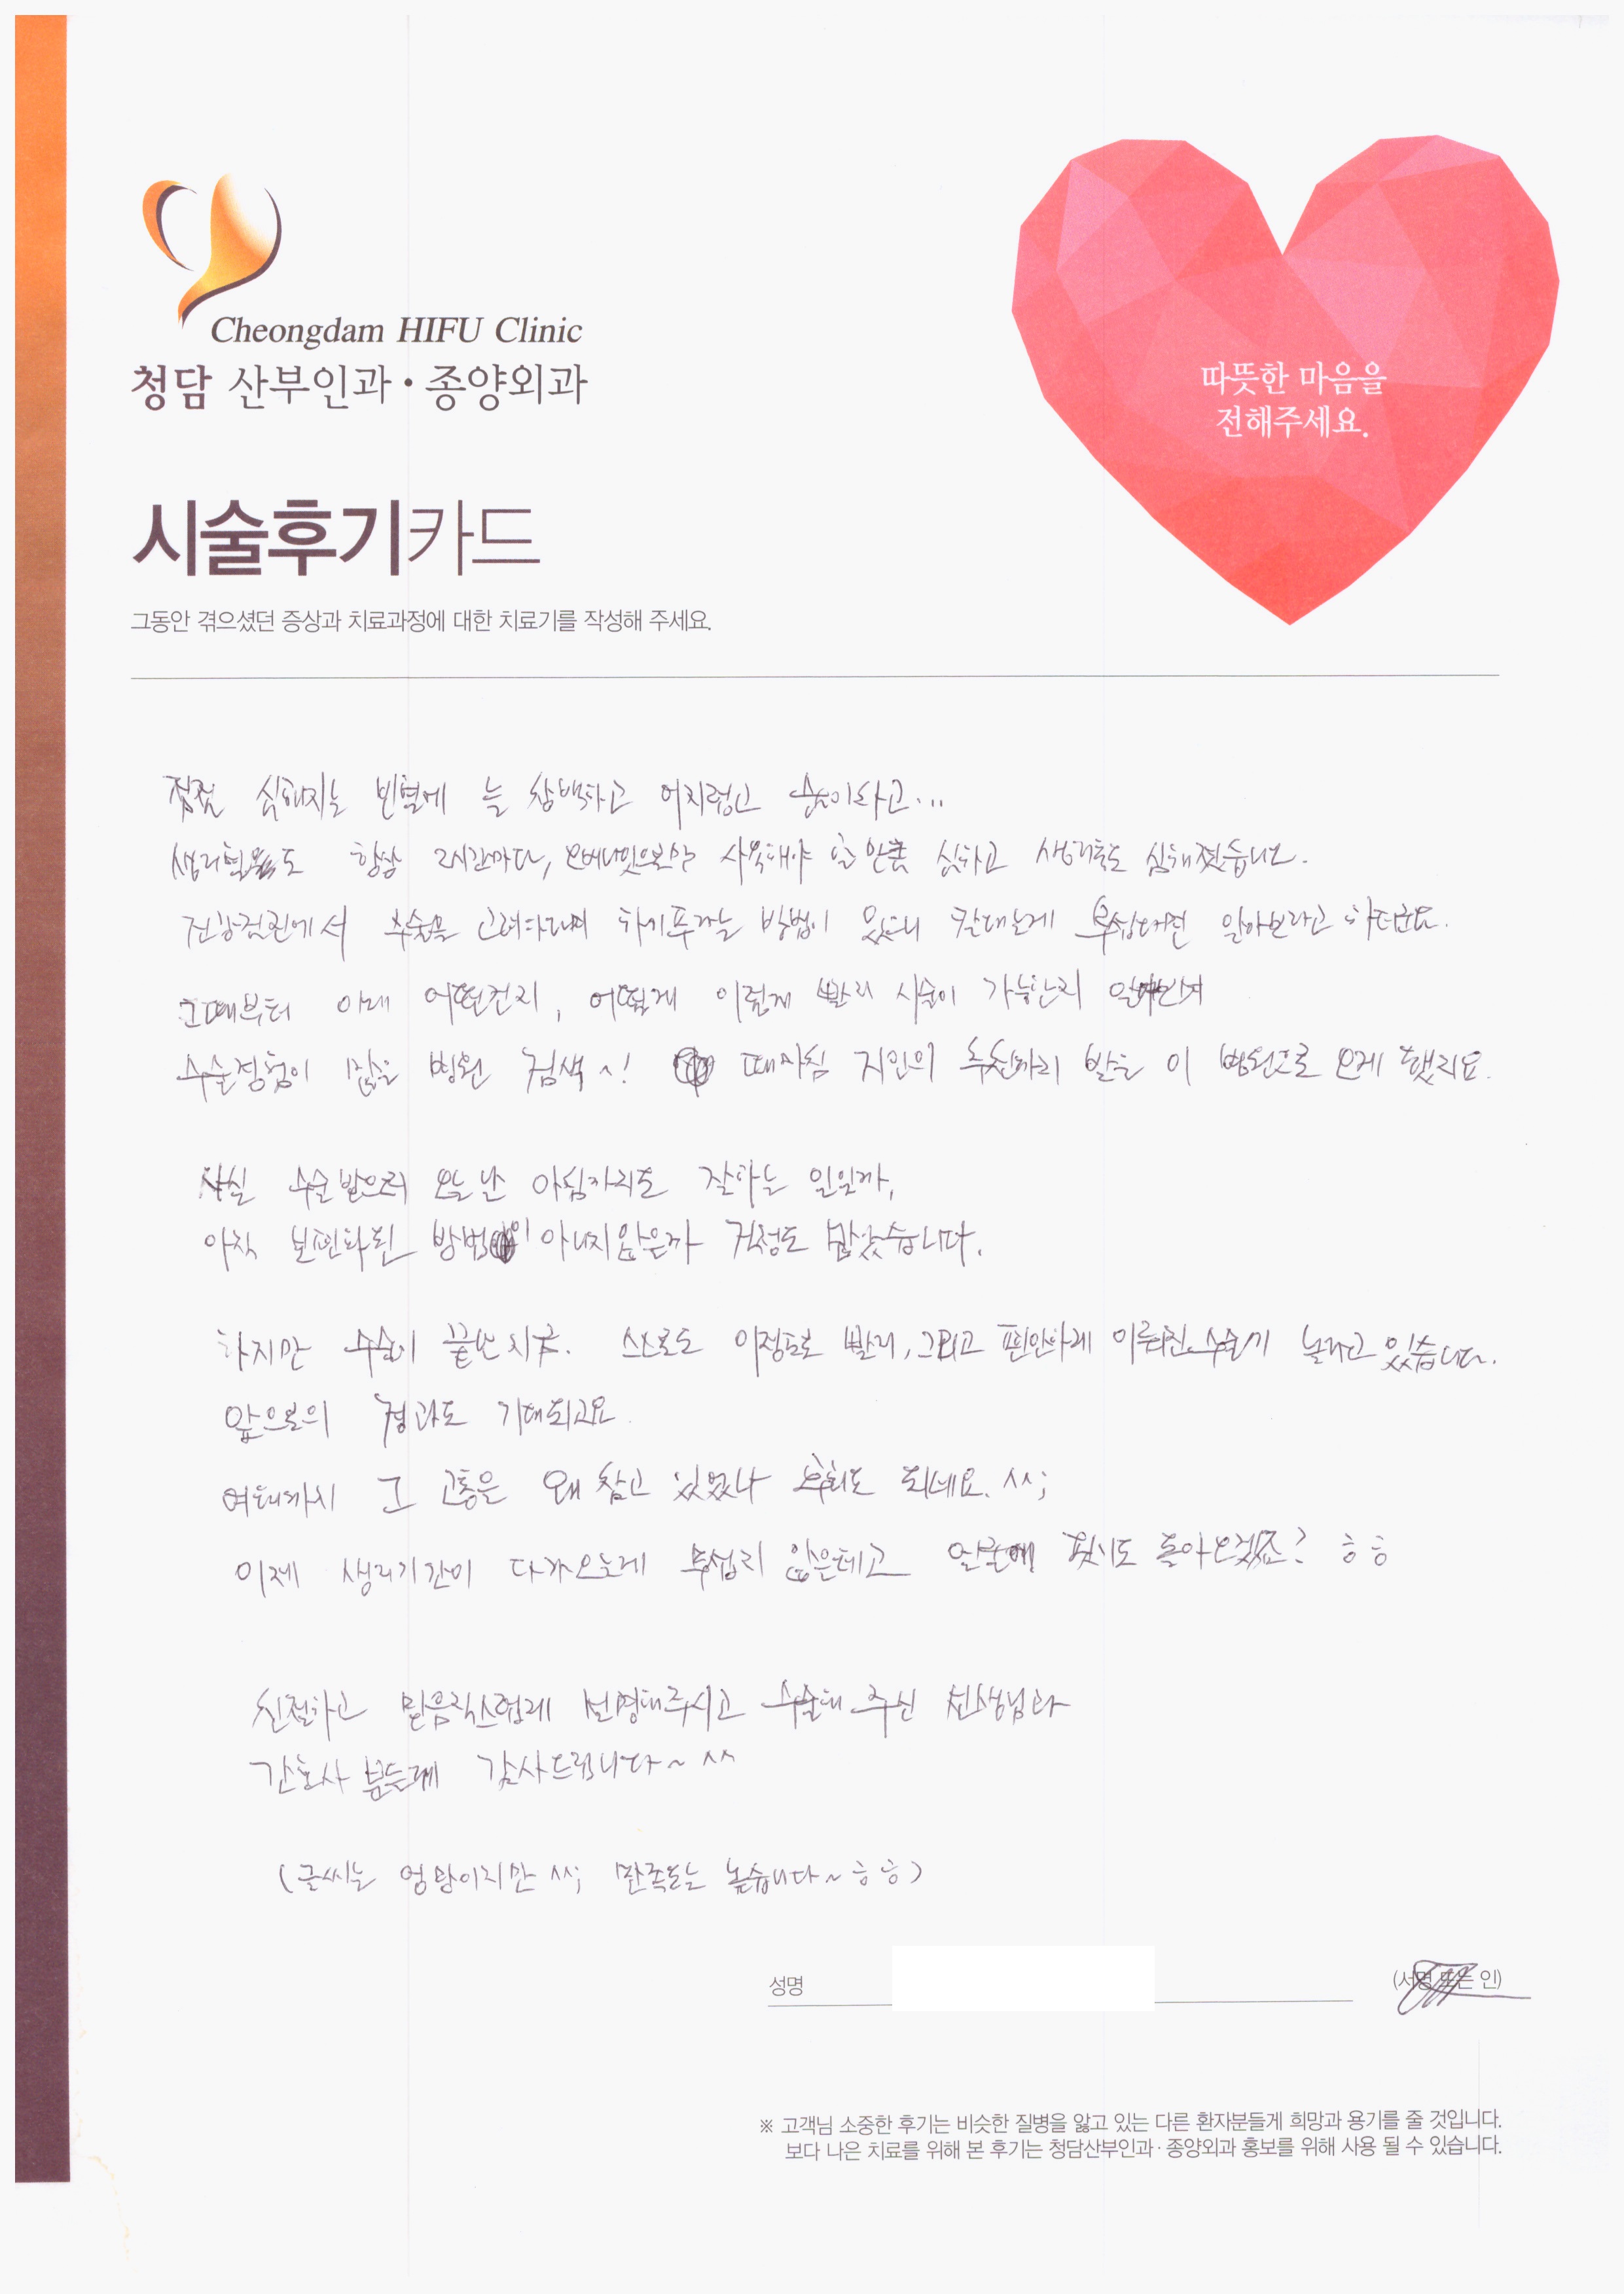 Cheongdam HIFU Clinic
청담 산부인과·종양외과
따뜻한 마음을
전해주세요.
시술후기카드
그동안 겪으셨던 증상과 치료과정에 대한 치료기를 작성해 주세요.
점점 심해지는 빈혈에 늘 창백하고 어지럽고 숨이차고...
생리혈도 항상 2시간마다, 오버나잇으로만 사용해야 할 만큼 심하고 생리통도 심해졌습니다.
건강검진에서 수술을 고려하다며 하이푸라는 방법이 있으니 한대는게 무섭다면 알아보라고 하더군요.
그때부터 아래 어떤건지, 어떻게 이렇게 빨리 시술이 가능한지 알아보며
수술경험이 많은 병원 검색~! 때마침 지인의 추천까지 받은 이 병원으로 오게 됐지요.
사실 수술 받으러 오늘 난 아침까지도 잘하는 일일까,
아직 보편화된 방법이 아니지않은가 걱정도 많았습니다.
하지만 수술이 끝난 지금. 스스로도 이정도로 빨리, 그리고 편안하게 이뤄진 수술기 놀라고 있습니다.
앞으로의 경과도 기대되고요.
여태까지 그 고통은 왜 참고 있었나 후회도 되네요. ^^;
이제 생리기간이 다가오는게 무섭지 않은테고 얼굴에 핏기도 돌아오겠죠? ㅎㅎ
친절하고 믿음직스럽게 설명해주시고 수술해 주신 선생님과
간호사 분들께 감사드립니다~ ^^
(글씨는 엉망이지만 ^^; 만족도는 높습니다~ㅎㅎ)
성명 (서명 또는 인)
※ 고객님 소중한 후기는 비슷한 질병을 앓고 있는 다른 환자분들게 희망과 용기를 줄 것입니다.
보다 나은 치료를 위해 본 후기는 청담산부인과·종양외과 홍보를 위해 사용 될 수 있습니다.